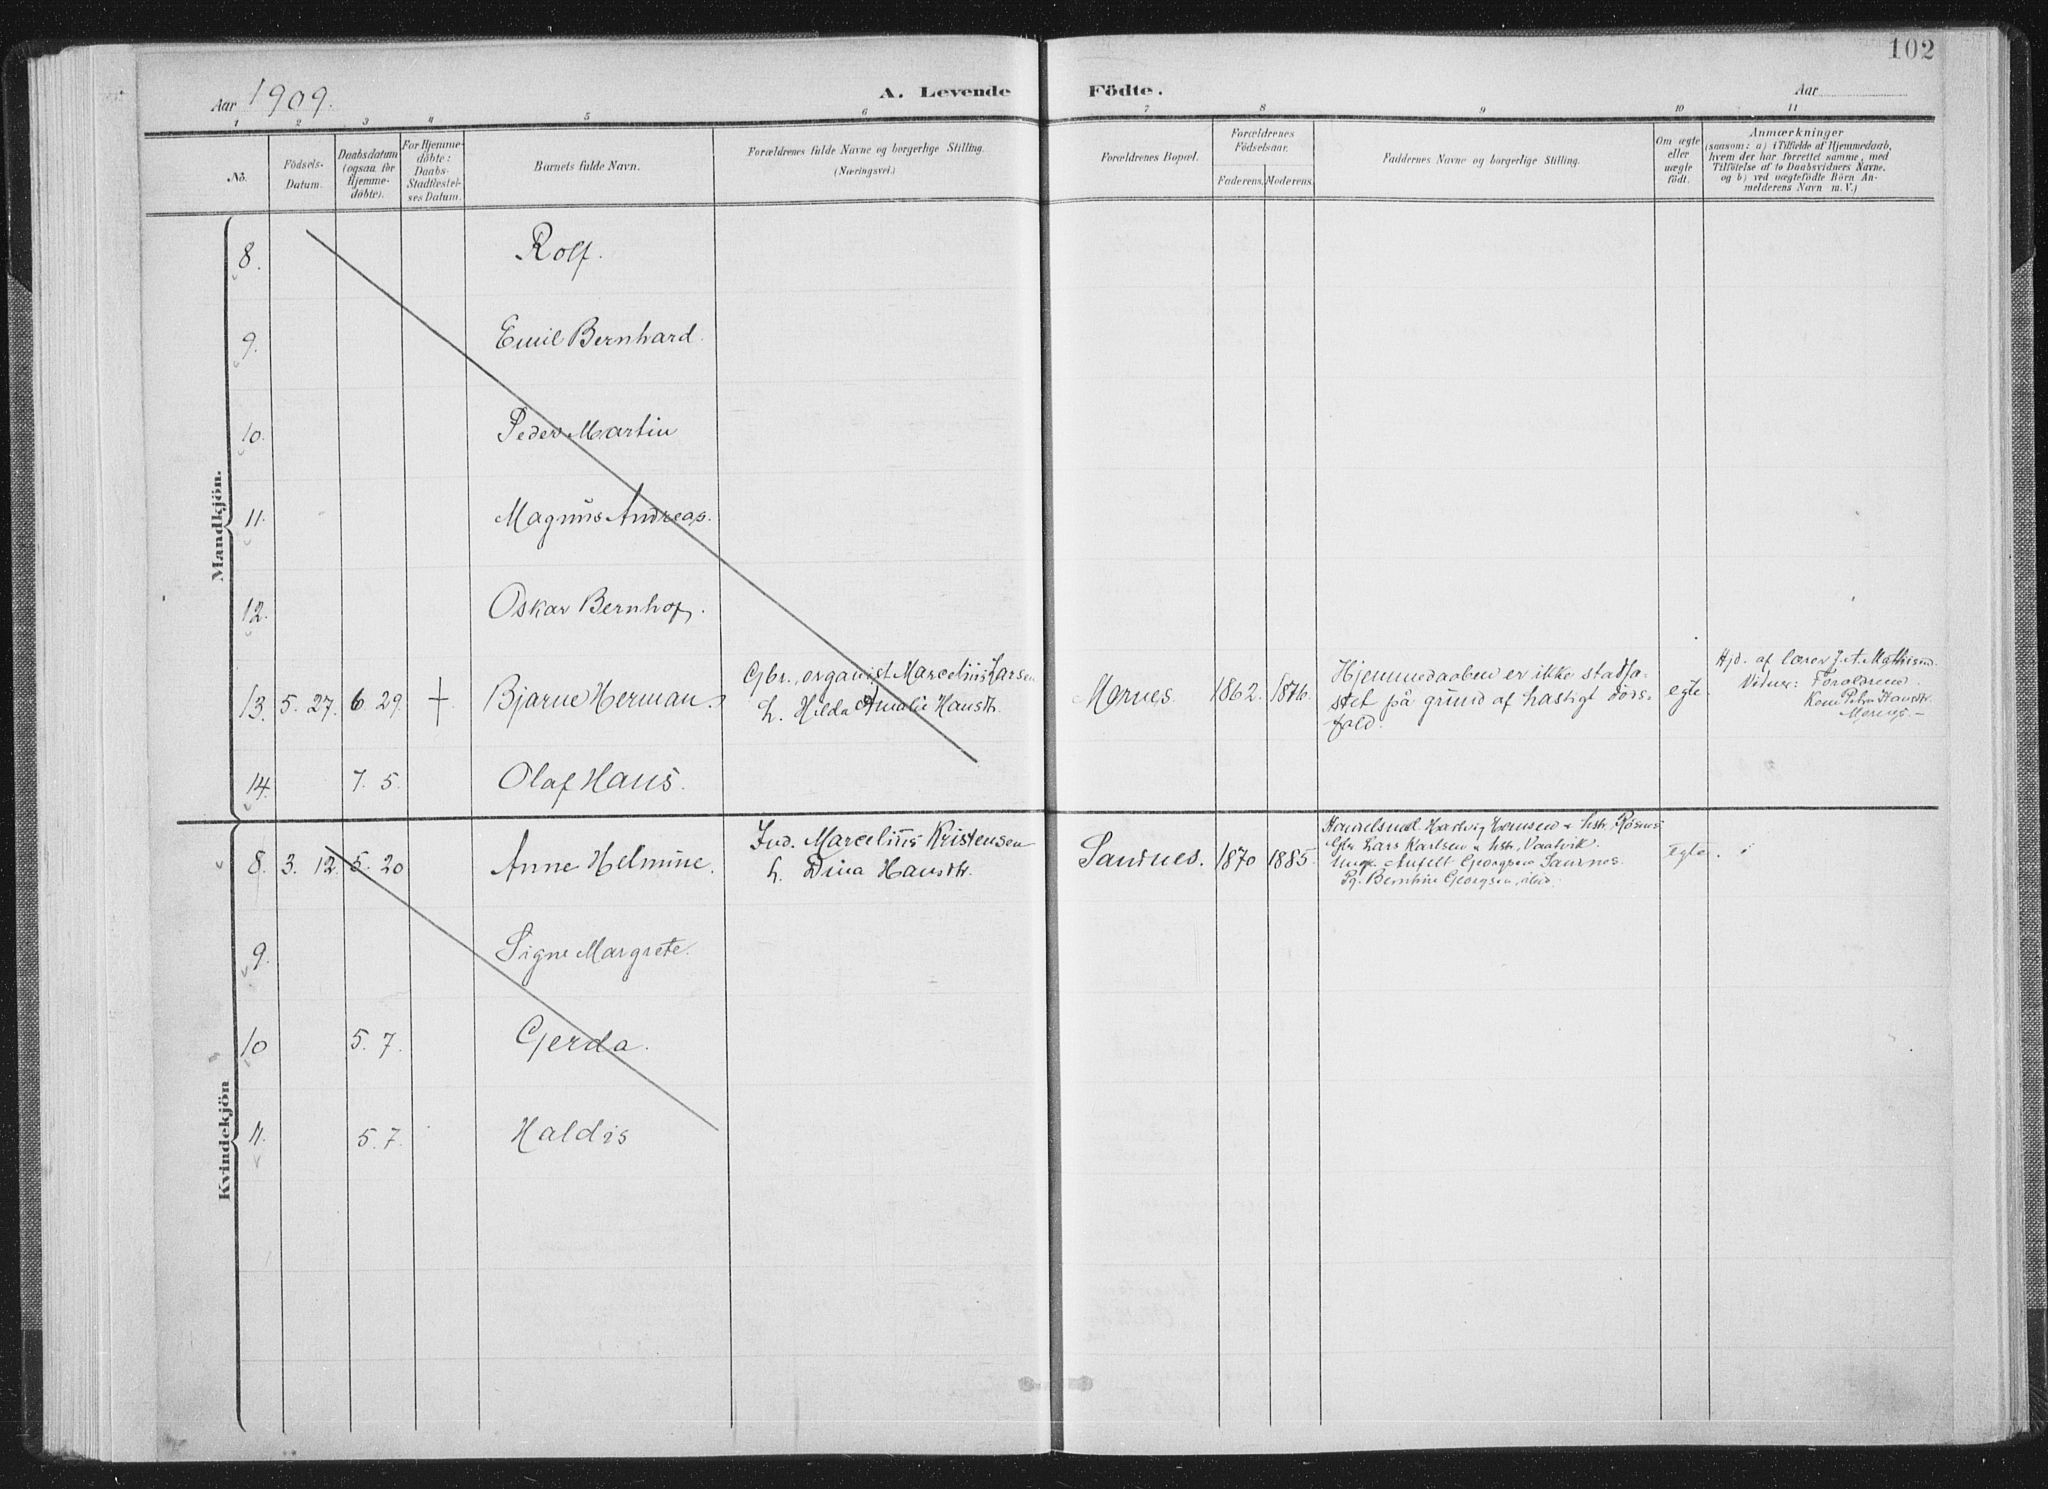 102
Aar 1909.
A. Levende Födte.
Aar
1 2 3 4 5 6 7 8 9 10 11
No.
Födsels-
Datum.
Daabsdatum
(ogsaa for
Hjemme-
döbte).
For Hjemme-
döbte:
Daabs-
Stadfæstel-
ses Datum.
Barnets fulde Navn.
Forældrenes fulde Navne og borgerlige Stilling.
(Næringsvei.)
Forældrenes Bopæl.
Forældrenes
Födselsaar.
Faderens. Moderens.
Faddernes Navne og borgerlige Stilling.
Om ægte
eller
uægte
födt.
Anmærkninger
(saasom: a) i Tilfælde af Hjemmedaab,
hvem der har forrettet samme, med
Tilföielse af to Daabsvidners Navne,
og b) ved uægtefödte Börn An-
melderens Navn m. V.)
Mandkjön.
8. Rolf.
9. Emil Bernhard.
10. Peder Martin
11. Magnus Andreas.
12. Oskar Bernhof.
13. 5. 27. 6. 29. + Bjarne Herman.
Gbr., organist Marcelius Larsen
h. Hilda Amalie Hansdtr.
Mernes. 1862. 1876.
Hjemmedaaben er ikke stadfæ-
stet på grund af hastigt döds-
fald.
egte.
Hjd. af lærer J. A. Mathisen.
Vidner: Forældrene.
Kone Petra Hansdtr.
Mernes. -
14. 7. 5. Olaf Hans.
Kvindekjön
8. 3. 12. 5. 20 Anne Helmine.
Ind. Marcelius Kristensen
h. Dina Hansdtr.
Sandnes. 1870 1885.
Handelsmd. Hartvig Hansen & hstr. Rösnes
Gbr. Lars Karlsen & hstr, Vaatvik.
Ungk. Anfelt Georgsen Sandnes.
Pg. Bernhine Georgsen, ibid.
Egte.
9. Signe Margrete.
10 5. 7. Gerda.
11. 5. 7. Haldis